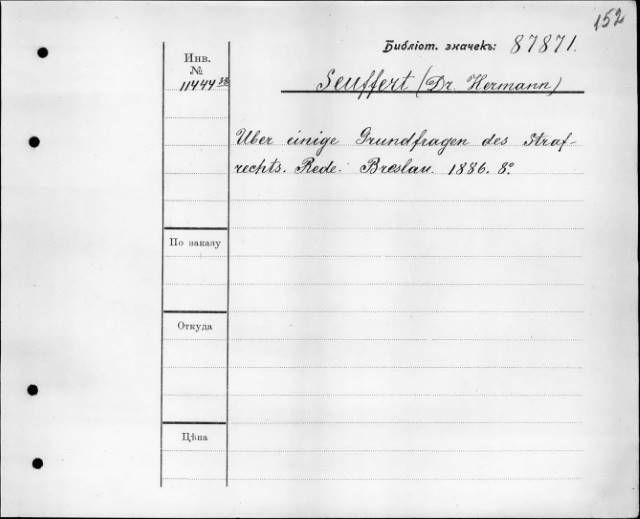 152
Библіот. значекъ: 87871.
Инв.
№
11444 38
Seuffert (Dr. Hermann)
Uber einige Grundfragen des Straf-
rechts. Rede. Breslau. 1886. 8°.
По заказу
Откуда
Цѣна